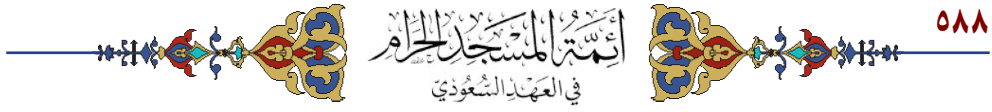 ٥٨٨
أئمة المسجد الحرام
في العهد السعودي